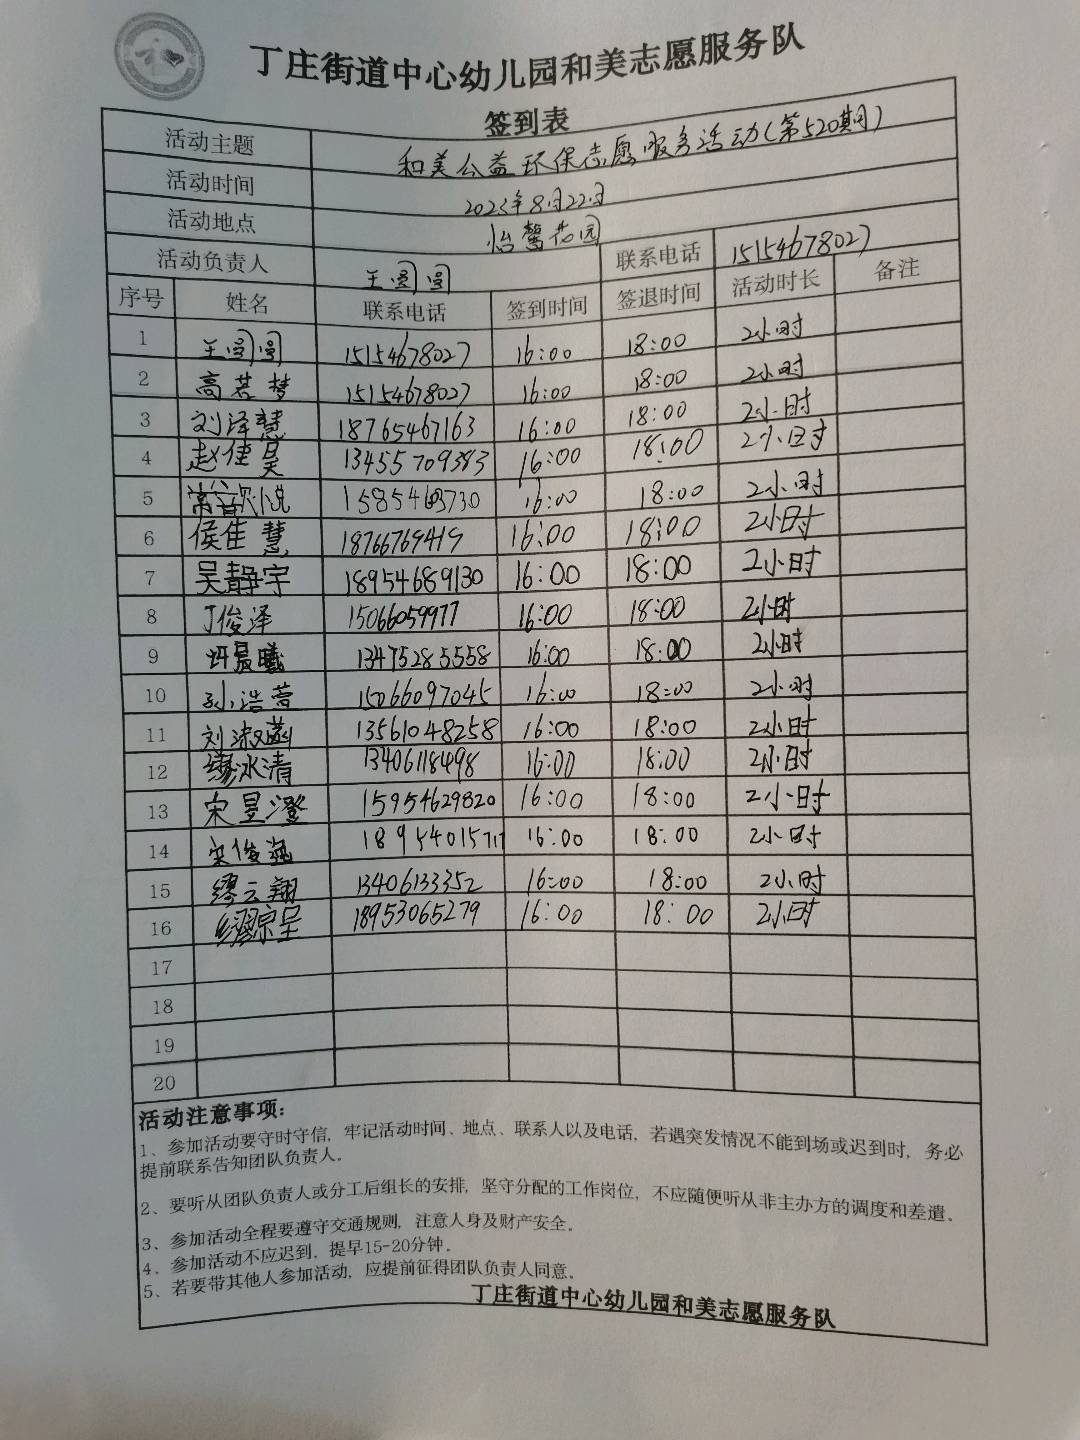 丁庄街道中心幼儿园和美志愿服务队
签到表
活动主题 和美公益环保志愿服务活动(第520期)
活动时间 2023年8月22日
活动地点 怡馨花园
活动负责人 王圆圆 联系电话 15154678027
序号 姓名 联系电话 签到时间 签退时间 活动时长 备注
1 王圆圆 15154678027 16:00 18:00 2小时
2 高若梦 15154678027 16:00 18:00 2小时
3 刘泽慧 18765467163 16:00 18:00 2小时
4 赵佳昊 13455709383 16:00 18:00 2小时
5 常欣悦 16:00 18:00 2小时
6 侯佳慧 18766769419 16:00 18:00 2小时
7 吴静宇 18954689130 16:00 18:00 2小时
8 丁俊泽 15066059977 16:00 18:00 2小时
9 许晨曦 13475285558 16:00 18:00 2小时
10 孙浩萱 15066097045 16:00 18:00 2小时
11 刘淑菡 13561048258 16:00 18:00 2小时
12 缪冰清 13406118498 16:00 18:00 2小时
13 宋昱澄 15954629820 16:00 18:00 2小时
14 宋俊涵 18954015717 16:00 18:00 2小时
15 缪云翔 13406133352 16:00 18:00 2小时
16 缪宗呈 18953065279 16:00 18:00 2小时
17
18
19
20
活动注意事项:
1、参加活动要守时守信,牢记活动时间、地点、联系人以及电话,若遇突发情况不能到场或迟到时,务必
提前联系告知团队负责人。
2、要听从团队负责人或分工后组长的安排,坚守分配的工作岗位,不应随便听从非主办方的调度和差遣。
3、参加活动全程要遵守交通规则,注意人身及财产安全。
4、参加活动不应迟到,提早15-20分钟。
5、若要带其他人参加活动,应提前征得团队负责人同意。
丁庄街道中心幼儿园和美志愿服务队